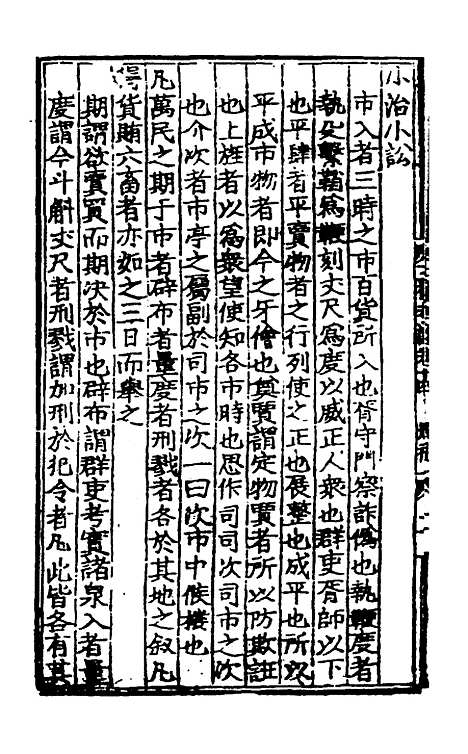 小治小訟
市入者三時之市百貨所入也胥守門察詐僞也執鞭度者
執殳繫鞘爲鞭刻丈尺爲度以威正人衆也群吏胥師以下
也平肆者平賣物者之行列使之正也展整也成平也所以
平成市物者即今之牙儈也奠賈謂定物賈者所以防欺誑
也上旌者以爲衆望使知各市時也思作司司次司市之次
也介次者市亭之屬副於司市之次一曰次市中候樓也
凡萬民之期于市者辟布者量度者刑戮者各於其地之敘凡
得貨賄六畜者亦如之三日而舉之
期謂欲賣買而期決於市也辟布謂群吏考實諸泉入者量
度謂今斗斛丈尺者刑戮謂加刑於犯令者凡此皆各有其